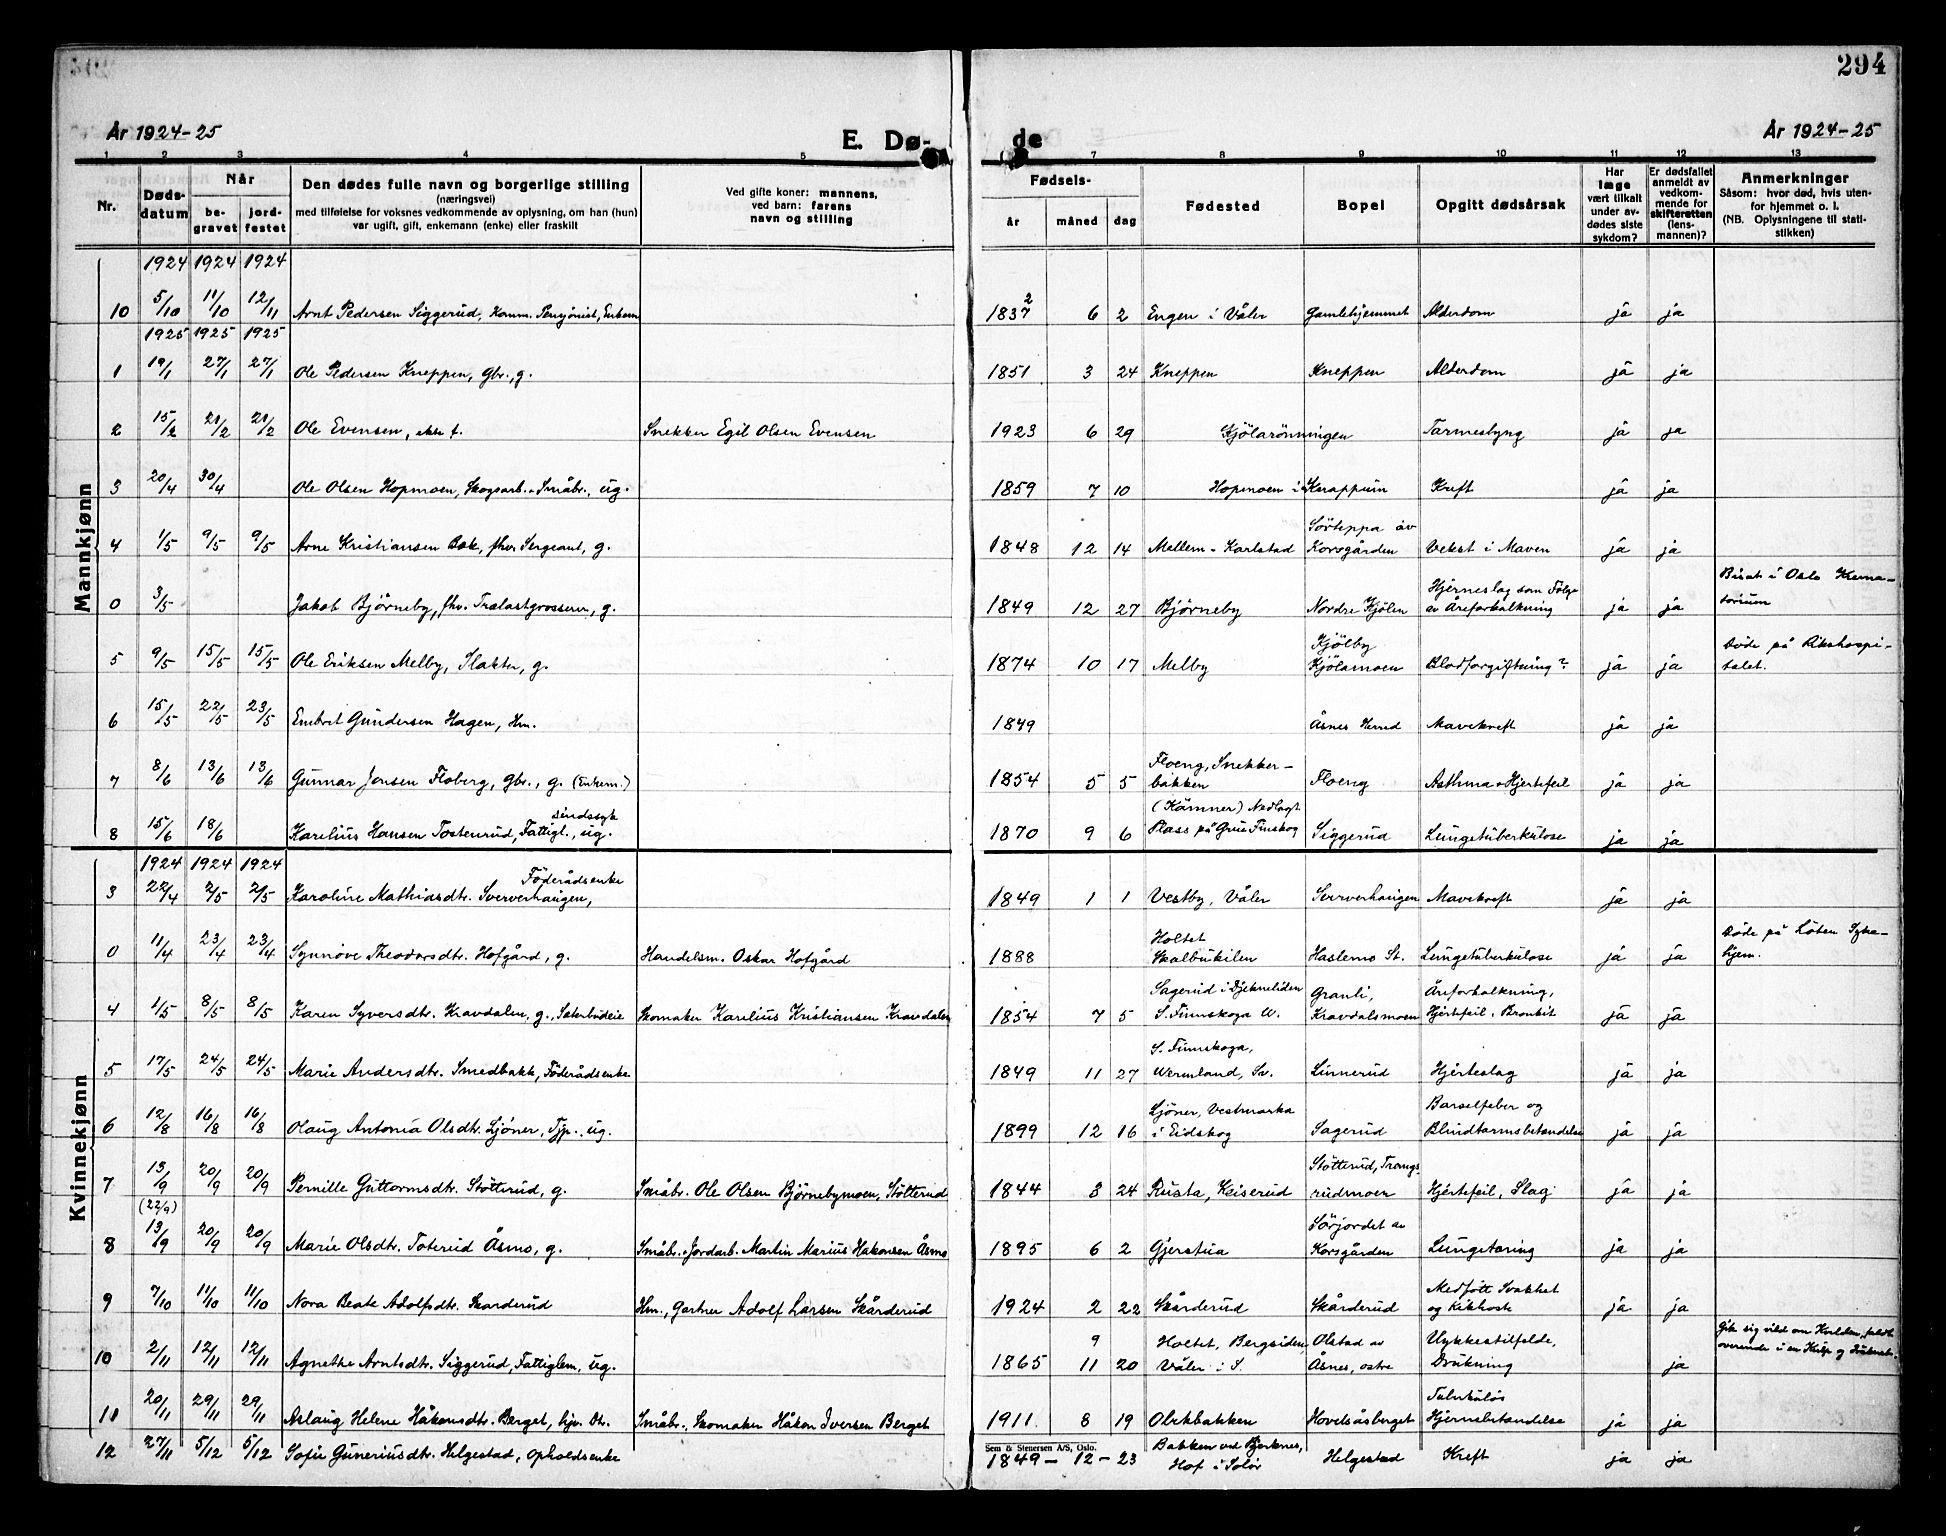 294
År 1924-25
E. Dø-
de
År 1924-25
1 2 3 4 5 7 8 9 10 11 12 13
Nr.
Døds-
datum
Når
be-
gravet
jord-
festet
Den dødes fulle navn og borgerlige stilling
(næringsvei)
med tilføielse for voksnes vedkommende av oplysning, om han (hun)
var ugift, gift, enkemann (enke) eller fraskilt
Ved gifte koner: mannens,
ved barn: farens
navn og stilling
Fødsels-
år måned dag
Fødested
Bopel
Opgitt dødsårsak
Har
læge
vært tilkalt
under av-
dødes siste
sykdom?
Er dødsfallet
anmeldt av
vedkom-
mende for
skifteretten
(lens-
mannen)?
Anmerkninger
Såsom: hvor død, hvis uten-
for hjemmet o. l.
(NB. Oplysningene til stati-
stikken)
Mannkjønn
1924 1924 1924
10 5/10 11/10 12/11 Arnt Pedersen Siggerud, Komm. Pensjonist, Enkem 1837 2 6 2 Engen i Våler Gamlehjemmet Alderdom ja ja
1925 1925 1925
1 19/1 27/1 27/1 Ole Pedersen Kneppen, Gbr., g. 1851 3 24 Kneppen Kneppen Alderdom ja ja
2 15/2 21/2 21/2 Ole Evensen, ekte f. Snekker Egil Olsen Evensen 1923 6 29 Kjölarönningen Tarmeslyng ja ja
3 20/4 30/4 Ole Olsen Hopmoen, Skogsarb. Småbr., ug. 1859 7 10 Hopmoen i Knappum Kreft ja ja
Sörteppa av
4 1/5 9/5 9/5 Arne Kristiansen Bek, fhv. Sergeant, g. 1848 12 14 Mellem-Karlstad Korsgården Vekst i Maven ja ja
Hjerneslag som Følge Bisat i Oslo Krema-
0 3/5 Jakob Björneby, fhv. Trælastgrosserer, g. 1849 12 27 Björneby Nordre Kjölen av Åreforkalkning ja ja torium
Kjölby Döde på Rikshospi-
5 9/5 15/5 15/5 Ole Eriksen Melby, Slakter, g. 1874 10 17 Melby Kjölamoen Blodforgiftning? ja ja talet.
6 15/5 22/5 23/5 Embret Gundersen Hagen, Hm. 1849 Åsnes Herred Mavekreft ja ja
Floeng, Snekker-
7 8/6 13/6 13/6 Gunnar Jonsen Floberg, Gbr., g. (Enkem.) 1854 5 5 bakken Floeng Asthma + Hjertefeil ja ja
sindssyk (Kämner) Nedlagt
8 15/6 18/6 Karelius Hansen Tostenrud, Fattigl., ug. 1870 9 6 Plass på Grue Finskog Siggerud Lungetuberkulose ja ja
Kvinnekjønn
1924 1924 1924
Föderådsenke
3 22/4 2/5 2/5 Karoline Mathiasdtr. Sververhaugen, 1849 1 1 Vestby, Våler Sververhaugen Mavekreft ja ja
Holtet Döde på Löten Syke-
0 11/4 23/4 23/4 Synnöve Theodorsdtr. Hofgård, g. Handelsm. Oskar Hofgård 1888 Skalbukilen Haslemo St. Lungetuberkulose ja ja hjem.
Sagerud i Djekneliden Granli, Åreforkalkning,
4 1/5 8/5 8/5 Karen Syversdtr. Kravdalen, g., Seterbudeie Skomaker Karelius Kristiansen Kravdalen 1854 7 5 S. Finnskoga V. Kravdalsmoen Hjertefeil, Bronkit ja ja
S. Finnskoga,
5 17/5 24/5 24/5 Marie Andersdtr. Smedbakk, Föderådsenke 1849 11 27 Wermland, Sv. Linnerud Hjerteslag ja ja
Ljöner, Vestmarka Barselfeber og
6 12/8 16/8 16/8 Olaug Antonia Olsdtr. Ljöner, Tjp., ug. 1899 12 16 i Eidskog Sagerud Blindtarmsbetendelse ja ja
Stötterud, Trangs-
7 13/9 20/9 20/9 Pernille Guttormsdtr. Stötterud, g. Småbr. Ole Olsen Björnebymoen, Stötterud 1844 3 24 Rusta, Keiserud rudmoen Hjertefeil, Slag ja ja
(22/9)
Sörjordet av
8 13/9 20/9 20/9 Marie Olsdtr. Toterud Åsmo, g. Småbr. Jordarb. Martin Marius Hakonsen Åsmo 1895 6 2 Gjerstua Korsgården Lungetæring ja ja
Medfött Svakhet
9 7/10 11/10 11/10 Nora Beate Adolfsdtr. Skarderud Hm., Gartner Adolf Larsen Skårderud 1924 2 22 Skårderud Skårderud og Kikhoste ja ja
9 Holtet, Bergsiden Olstad av Ulykkestilfelde, Gik sig vild om Kvelden, faldt
10 2/11 12/11 12/11 Agnethe Arntsdtr. Siggerud, Fattiglem, ug. 1865 11 20 Våler i S. Åsnes, östre Drukning ja overende i en Kulp og druknet.
Tuberkulös
11 20/11 29/11 29/11 Aslaug Helene Håkonsdtr. Berget, hjv. Dtr. Småbr. Skomaker Håkon Iversen Berget 1911 8 19 Olekbakken Hovelsåsberget Hjernebetendelse ja ja
Sem & Stenersen A/S, Oslo.
Bakken ved Bjerknes,
12 27/11 5/12 5/12 Sofie Guneriusdtr. Helgestad, Opholdsenke 1849 - 12 - 23 Hof i Solör Helgestad Kreft ja ja